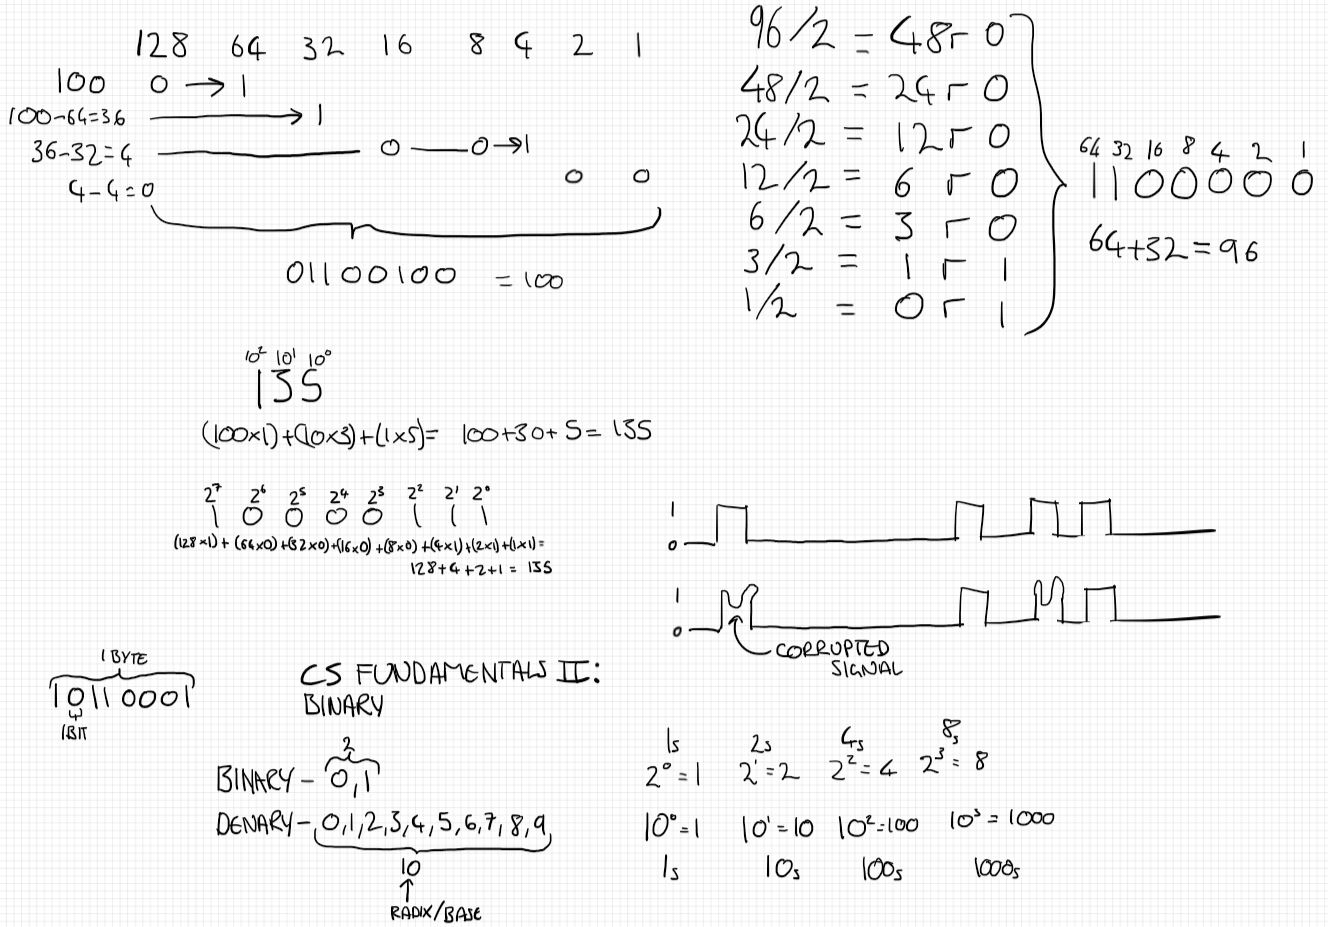 128 64 32 16 8 4 2 1
100 0 → 1
100-64=36 → 1
36-32=4 0 0→1
4-4=0 0 0
01100100 = 100
96/2 = 48 r 0
48/2 = 24 r 0
24/2 = 12 r 0
12/2 = 6 r 0
6/2 = 3 r 0
3/2 = 1 r 1
1/2 = 0 r 1
64 32 16 8 4 2 1
1100000
64+32=96
10² 10¹ 10⁰
135
(100×1)+(10×3)+(1×5)= 100+30+5= 135
2⁷ 2⁶ 2⁵ 2⁴ 2³ 2² 2¹ 2⁰
1 0 0 0 0 1 1 1
(128×1)+(64×0)+(32×0)+(16×0)+(8×0)+(4×1)+(2×1)+(1×1)=
128+4+2+1 = 135
1
0
1
0
CORRUPTED
SIGNAL
1 BYTE
10110001
1BIT
CS FUNDAMENTALS II:
BINARY
2
BINARY - 0,1
DENARY - 0,1,2,3,4,5,6,7,8,9
10
↑
RADIX/BASE
1s 2s 4s 8s
2⁰=1 2¹=2 2²=4 2³=8
10⁰=1 10¹=10 10²=100 10³=1000
1s 10s 100s 1000s